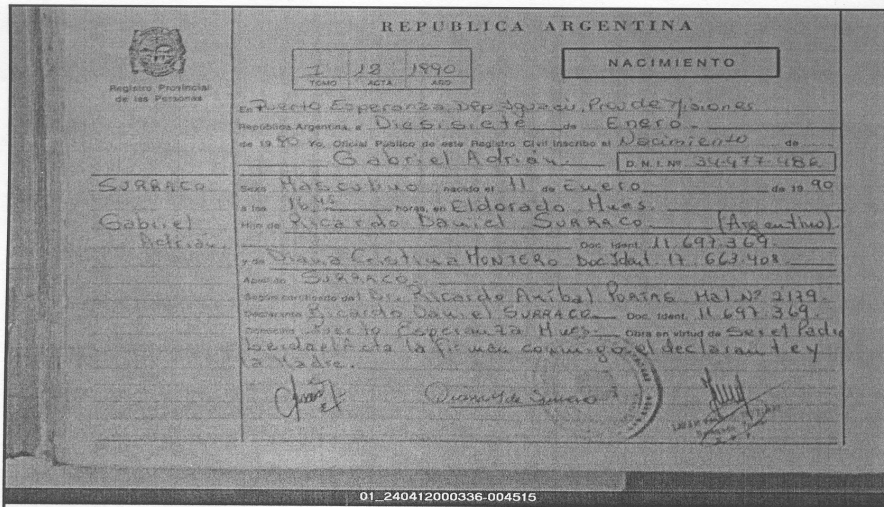 REPUBLICA ARGENTINA
Registro Provincial
de las Personas
1 12 1990
TOMO ACTA AÑO
NACIMIENTO
En Puerto Esperanza, Dep Iguazú, Prov de Misiones
República Argentina, a Diesisiete de Enero
de 1990 Yo, Oficial Público de este Registro Civil inscribo el Nacimiento de
Gabriel Adrián D.N.I. Nº 34-477-486
SURRACO
Gabriel
Adrián
Sexo Masculino nacido el 11 de Enero de 1990
a las 16,45 horas, en Eldorado Mnes.
Hijo de Ricardo Daniel SURRACO (Argentino)
Doc. Ident. 11.697.369
y de Diana Cristina MONTERO Doc Ident. 17.663.408
Apellido SURRACO
Según certificado del Dr. Ricardo Aníbal Mat Nº 2179
Declarante Ricardo Daniel SURRACO Doc. Ident. 11.697.369
Domicilio Puerto Esperanza Mnes. Obra en virtud de Ser el Padre
Leida el Acta la firman conmigo, el declarante y
la Madre.
01_240412000336-004515